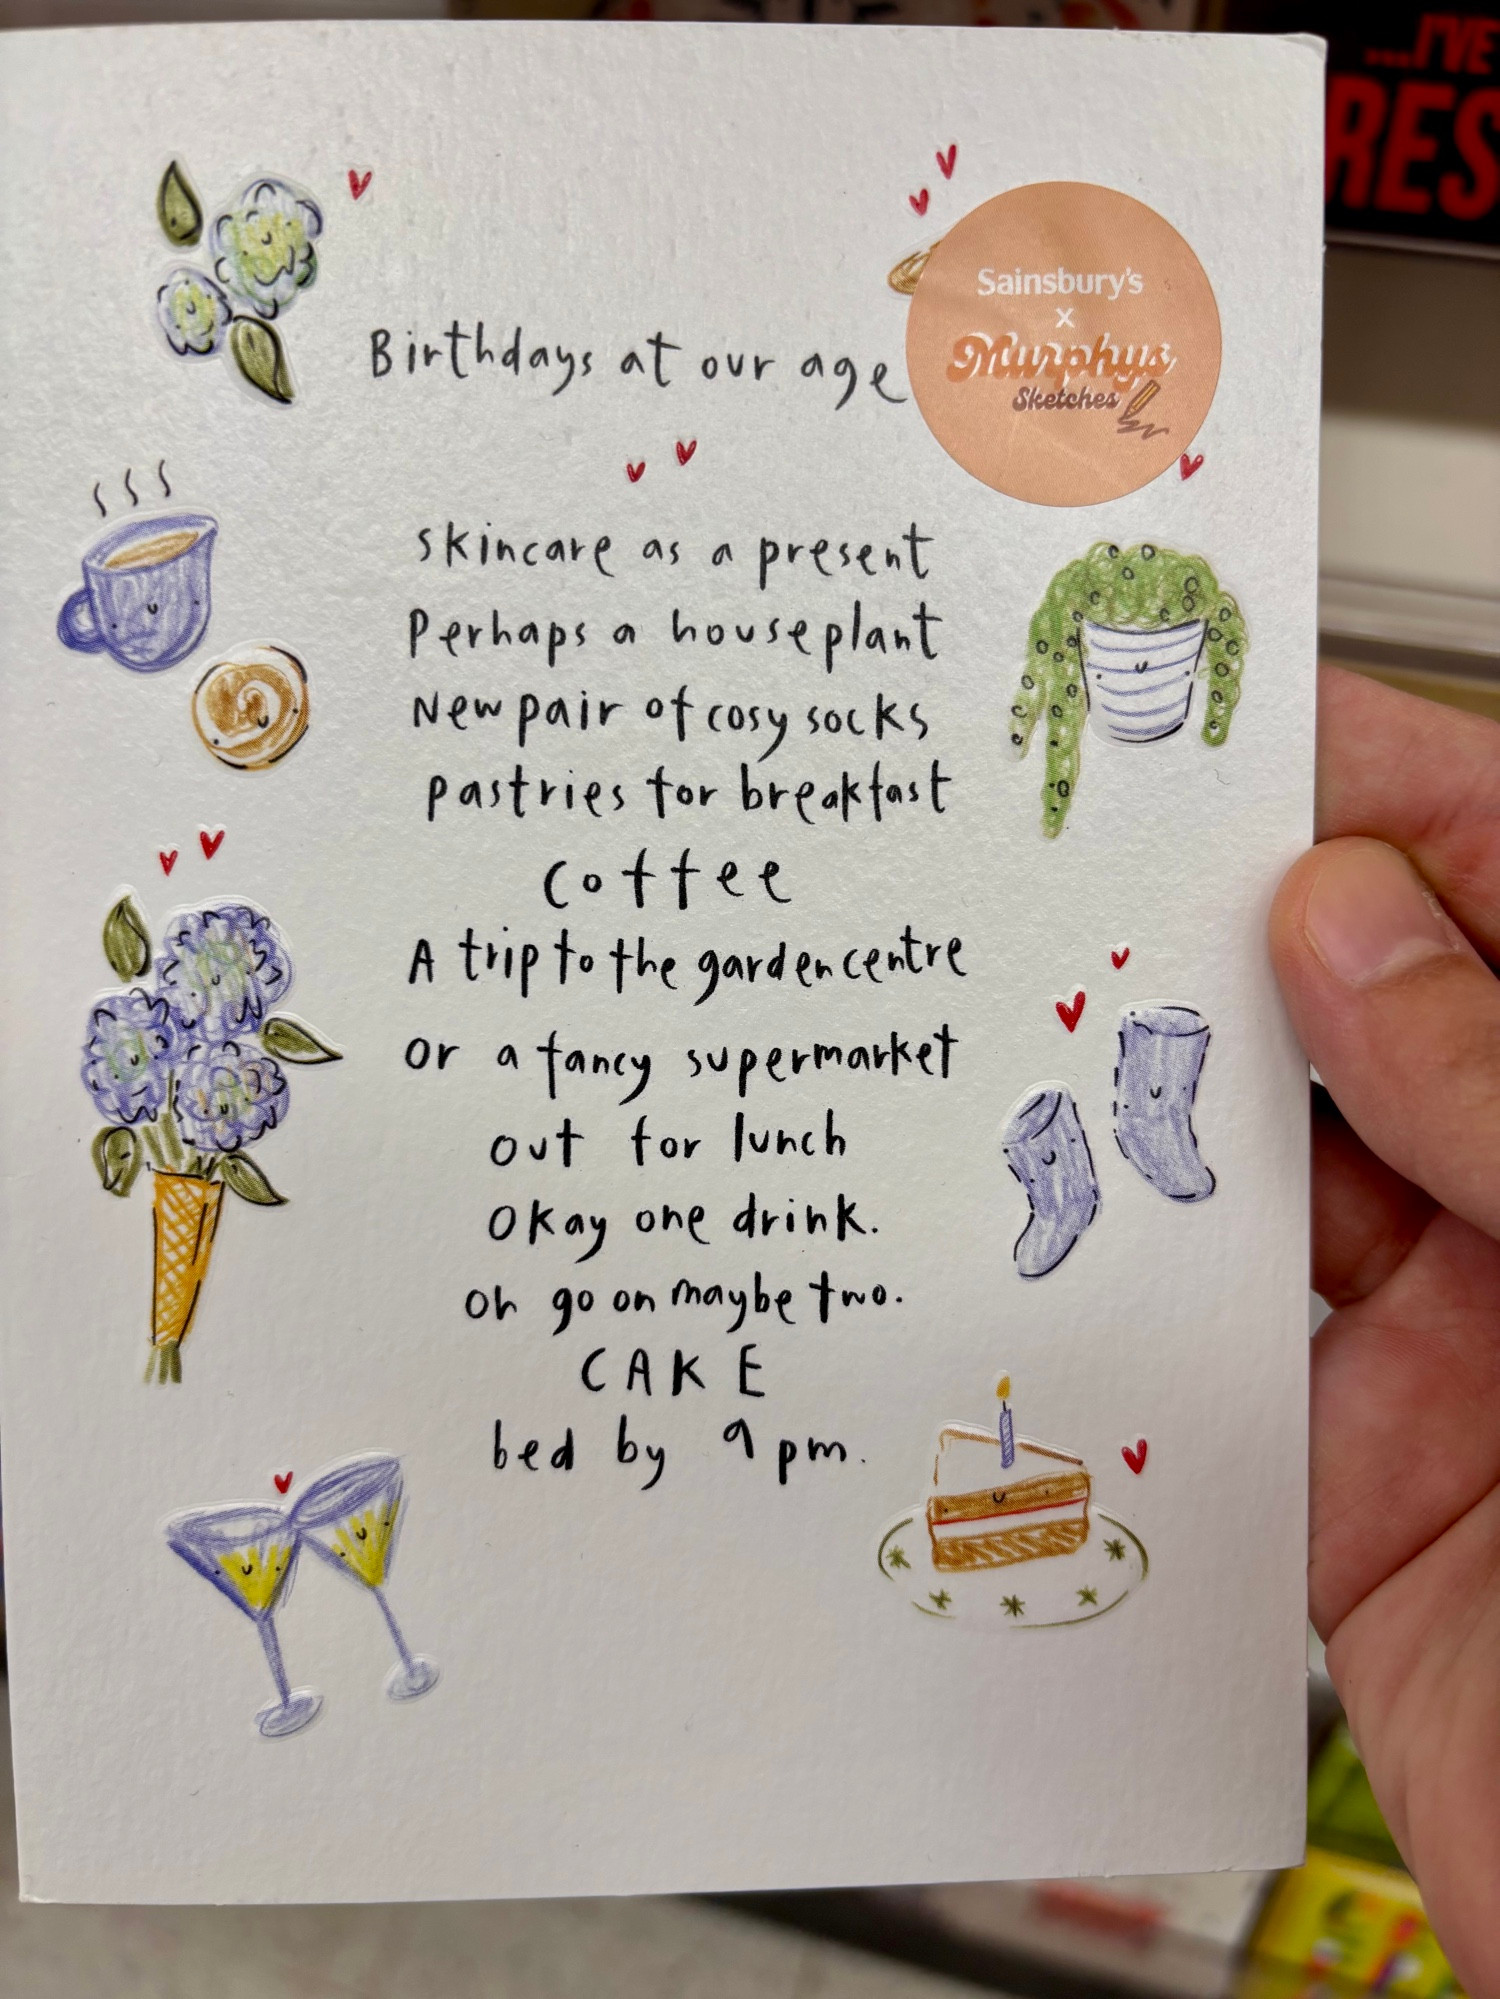 ...I'VE
RES
Sainsbury's
x
Murphys
Sketches
Birthdays at our age
skincare as a present
Perhaps a houseplant
New pair of cosy socks
pastries for breakfast
coffee
A trip to the garden centre
or a fancy supermarket
out for lunch
Okay one drink.
oh go on maybe two.
CAKE
bed by 9pm.